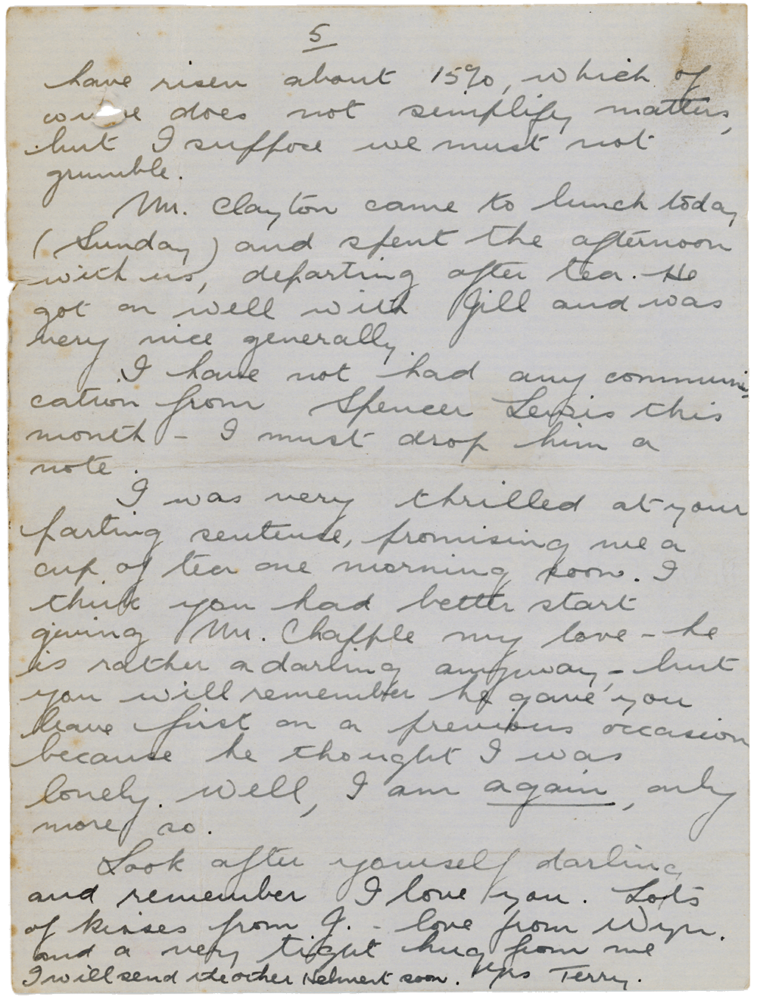 5
have risen about 15%, which of
course does not simplify matters,
but I suppose we must not
grumble.
Mr. Clayton came to lunch today
(Sunday) and spent the afternoon
with us, departing after tea. He
got on well with Jill and was
very nice generally.
I have not had any communi-
cation from Spencer Lewis this
month - I must drop him a
note.
I was very thrilled at your
parting sentence, promising me a
cup of tea one morning soon. I
think you had better start
giving Mr. Chapple my love - he
is rather a darling anyway, - but
you will remember he gave you
leave first on a previous occasion
because he thought I was
lonely. Well, I am again, only
more so.
Look after yourself darling
and remember I love you. Lots
of kisses from J. - love from Wyn.
and a very tight hug from me
I will send the other Helmert soon. Yrs Terry.